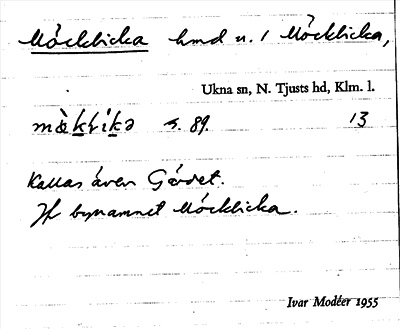 Möckbicka hmd n. 1 Möckbicka,
Ukna sn, N. Tjusts hd, Klm. l.
s. 89. 13
Kallas även Gärdet.
Jf bynamnet Möckbicka.
Ivar Modéer 1955